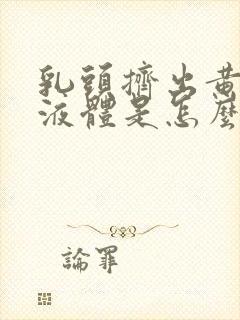 乳頭擠出黃
液體是怎麼
論罪